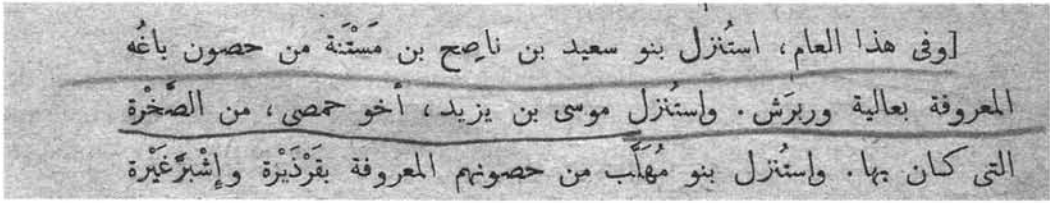 [وفى هذا العام، استُنزل بنو سعيد بن ناصِح بن مَسْتَنة من حصون باغُه
المعروفة بعالية وربرَش. واستُنزل موسى بن يزيد، أخو حمصى، من الصَّخْرة
التى كان بها. واستُنزل بنو مُهَلَّب من حصونهم المعروفة بقَرْذَيْرة وإشْبَرَّغَيْرة